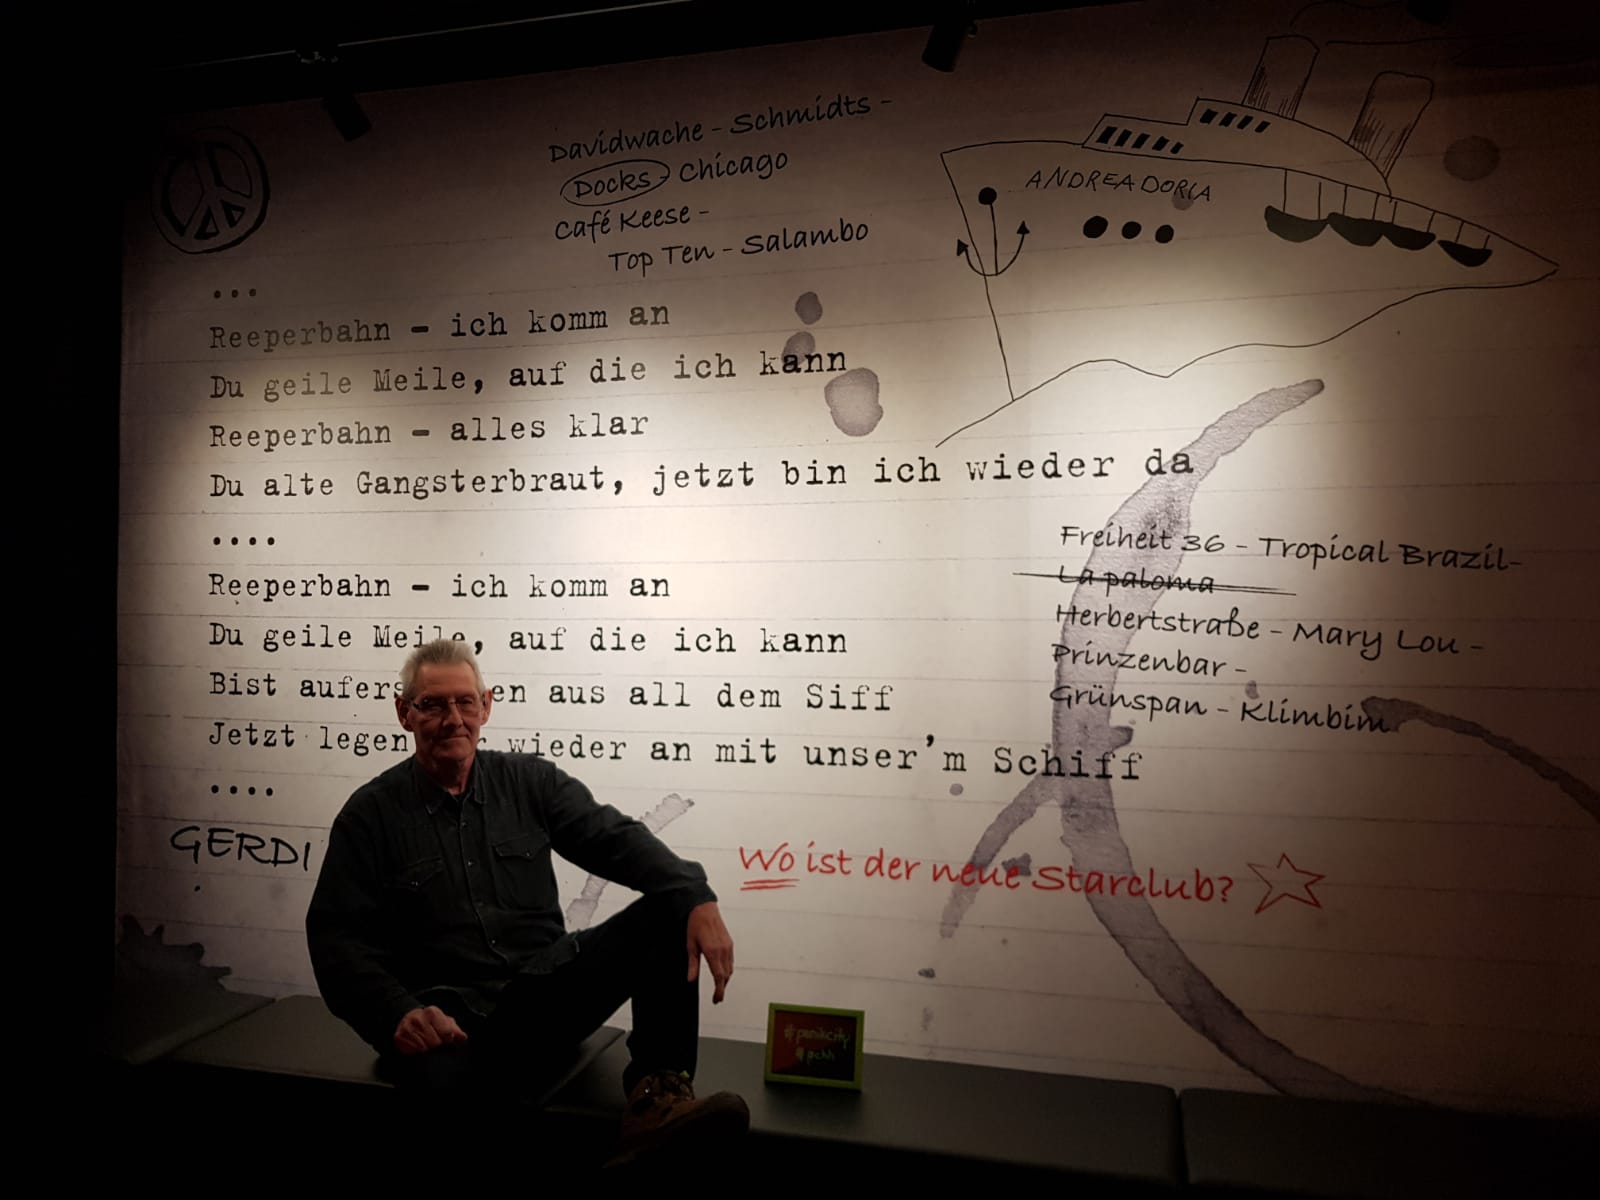 Davidwache - Schmidts -
Docks - Chicago
Café Keese -
Top Ten - Salambo
ANDREA DORIA
...
Reeperbahn - ich komm an
Du geile Meile, auf die ich kann
Reeperbahn - alles klar
Du alte Gangsterbraut, jetzt bin ich wieder da
....
Reeperbahn - ich komm an
Du geile Meile, auf die ich kann
Bist aufers en aus all dem Siff
Jetzt legen wieder an mit unser'm Schiff
....
Freiheit 36 - Tropical Brazil-
La paloma
Herbertstraße - Mary Lou -
Prinzenbar -
Grünspan - Klimbim
GERDI
Wo ist der neue Starclub?
#panikcity
#pchh